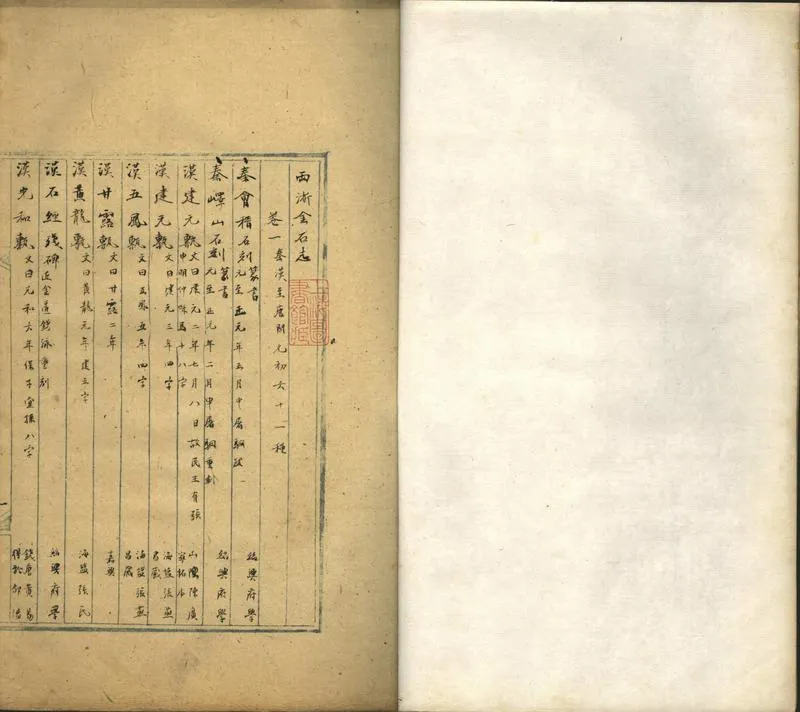 兩浙金石志
卷一 秦漢至唐開元初六十一種
秦會稽石刻 篆書 元至正元年五月申屠駉跋 紹興府學
秦嶧山石刻 篆書 元至正元年二月申屠駉重刻 紹興府學
漢建元甎 文曰建元二年七月八日 故民王有張 十八字 山陰陳廣寧拓本
漢建元甎 文曰建元三年四字 海鹽張燕昌藏
漢五鳳甎 文曰五鳳五年四字 海鹽張燕昌藏
漢甘露甎 文曰甘露二年 嘉興
漢黃龍甎 文曰黃龍元年建五字 海鹽張氏
漢石經殘碑 近金匱錢泳重刻 紹興府學
漢元和甎 文曰元和六年保子宜孫八字 錢唐黃易